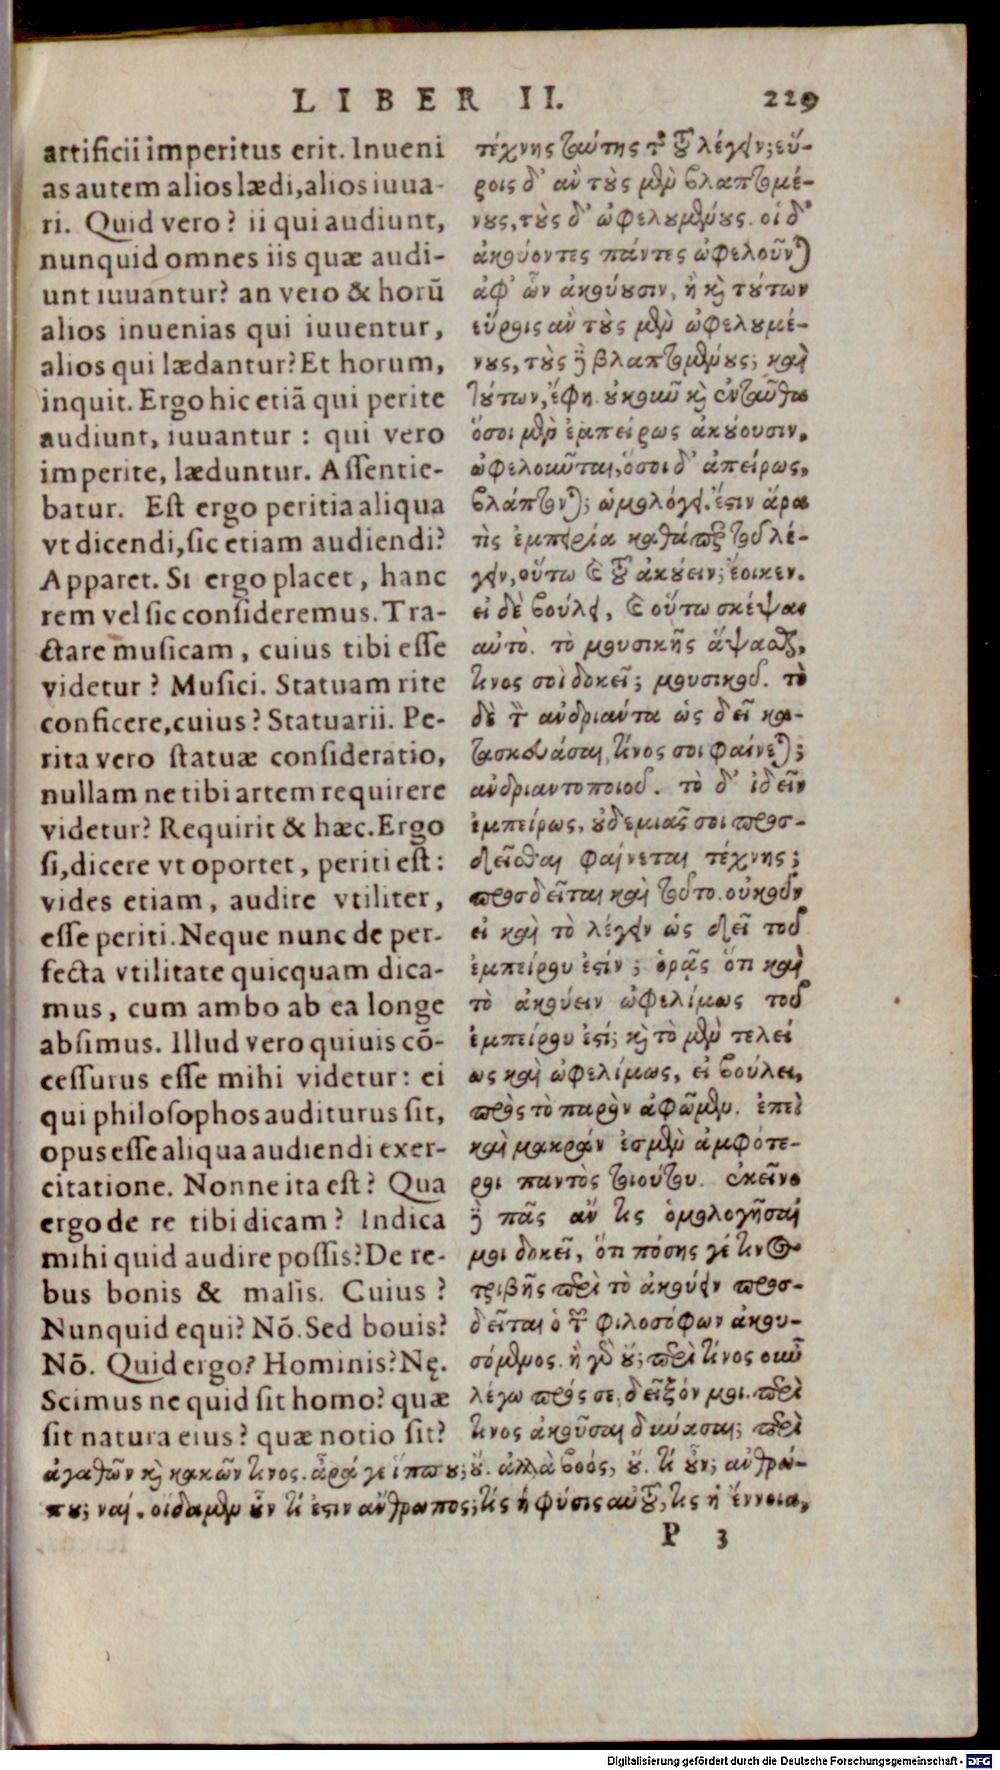 LIBER II. 229
artificii imperitus erit. Inueni
as autem alios lædi, alios iuua-
ri. Quid vero? ii qui audiunt,
nunquid omnes iis quæ audi-
unt iuuantur? an vero & horū
alios inuenias qui iuuentur,
alios qui lædantur? Et horum,
inquit. Ergo hic etiā qui perite
audiunt, iuuantur: qui vero
imperite, læduntur. Assentie-
batur. Est ergo peritia aliqua
vt dicendi, sic etiam audiendi?
Apparet. Si ergo placet, hanc
rem vel sic consideremus. Tra-
ctare musicam, cuius tibi esse
videtur? Musici. Statuam rite
conficere, cuius? Statuarii. Pe-
rita vero statuæ consideratio,
nullam ne tibi artem requirere
videtur? Requirit & hæc. Ergo
si, dicere vt oportet, periti est:
vides etiam, audire vtiliter,
esse periti. Neque nunc de per-
fecta vtilitate quicquam dica-
mus, cum ambo ab ea longe
absimus. Illud vero quiuis cō-
cessurus esse mihi videtur: ei
qui philosophos auditurus sit,
opus esse aliqua audiendi exer-
citatione. Nonne ita est? Qua
ergo de re tibi dicam? Indica
mihi quid audire possis? De re-
bus bonis & malis. Cuius?
Nunquid equi? Nō. Sed bouis?
Nō. Quid ergo? Hominis? Nę.
Scimus ne quid sit homo? quæ
sit natura eius? quæ notio sit?
τέχνης ταύτης τῆς τοῦ λέγειν; εὕ-
ροις δ' ἂν τοὺς μὲν βλαπτομέ-
νους, τοὺς δ' ὠφελουμένους. οἱ δ'
ἀκούοντες πάντες ὠφελοῦνται
ἀφ' ὧν ἀκούουσιν, ἢ καὶ τούτων
εὕροις ἂν τοὺς μὲν ὠφελουμέ-
νους, τοὺς δὲ βλαπτομένους; καὶ
τούτων, ἔφη. οὐκοῦν καὶ ἐνταῦθα
ὅσοι μὲν ἐμπείρως ἀκούουσιν,
ὠφελοῦνται, ὅσοι δ' ἀπείρως,
βλάπτονται; ὡμολόγει. ἔστιν ἄρα
τὶς ἐμπειρία καθάπερ τοῦ λέ-
γειν, οὕτω καὶ τοῦ ἀκούειν; ἔοικεν.
εἰ δὲ βούλει, καὶ οὕτω σκέψαι
αὐτό. τὸ μουσικῆς ἅψασθαι,
τίνος σοὶ δοκεῖ; μουσικοῦ. τὸ
δὲ τὸν ἀνδριάντα ὡς δεῖ κα-
τασκευάσαι, τίνος σοι φαίνεται;
ἀνδριαντοποιοῦ. τὸ δ' ἰδεῖν
ἐμπείρως, οὐδεμιᾶς σοι προσ-
δεῖσθαι φαίνεται τέχνης;
προσδεῖται καὶ τοῦτο. οὐκοῦν
εἰ καὶ τὸ λέγειν ὡς δεῖ τοῦ
ἐμπείρου ἐστίν; ὁρᾷς ὅτι καὶ
τὸ ἀκούειν ὠφελίμως τοῦ
ἐμπείρου ἐστί; καὶ τὸ μὲν τελεί
ως καὶ ὠφελίμως, εἰ βούλει,
πρὸς τὸ παρὸν ἀφῶμεν. ἐπεὶ
καὶ μακράν ἐσμεν ἀμφότε-
ροι παντὸς τοιούτου. ἐκεῖνο
δὲ πᾶς ἄν τις ὁμολογῆσαί
μοι δοκεῖ, ὅτι πόσης γέ τινος
τριβῆς περὶ τὸ ἀκούειν προσ-
δεῖται ὁ τῶν φιλοσόφων ἀκου-
σόμενος. ἢ γὰρ οὔ; περὶ τίνος οὖν
λέγω πρός σε, δεῖξόν μοι. περὶ
τίνος ἀκοῦσαι δύνασαι; περὶ
ἀγαθῶν καὶ κακῶν τίνος. ἆρά γε ἵππου; οὔ. ἀλλὰ βοός, οὔ. τί οὖν; ἀνθρώ-
που; ναί. οἴδαμεν οὖν τί ἐστιν ἄνθρωπος; τίς ἡ φύσις αὐτοῦ, τίς ἡ ἔννοια,
P 3
Digitalisierung gefördert durch die Deutsche Forschungsgemeinschaft - DFG